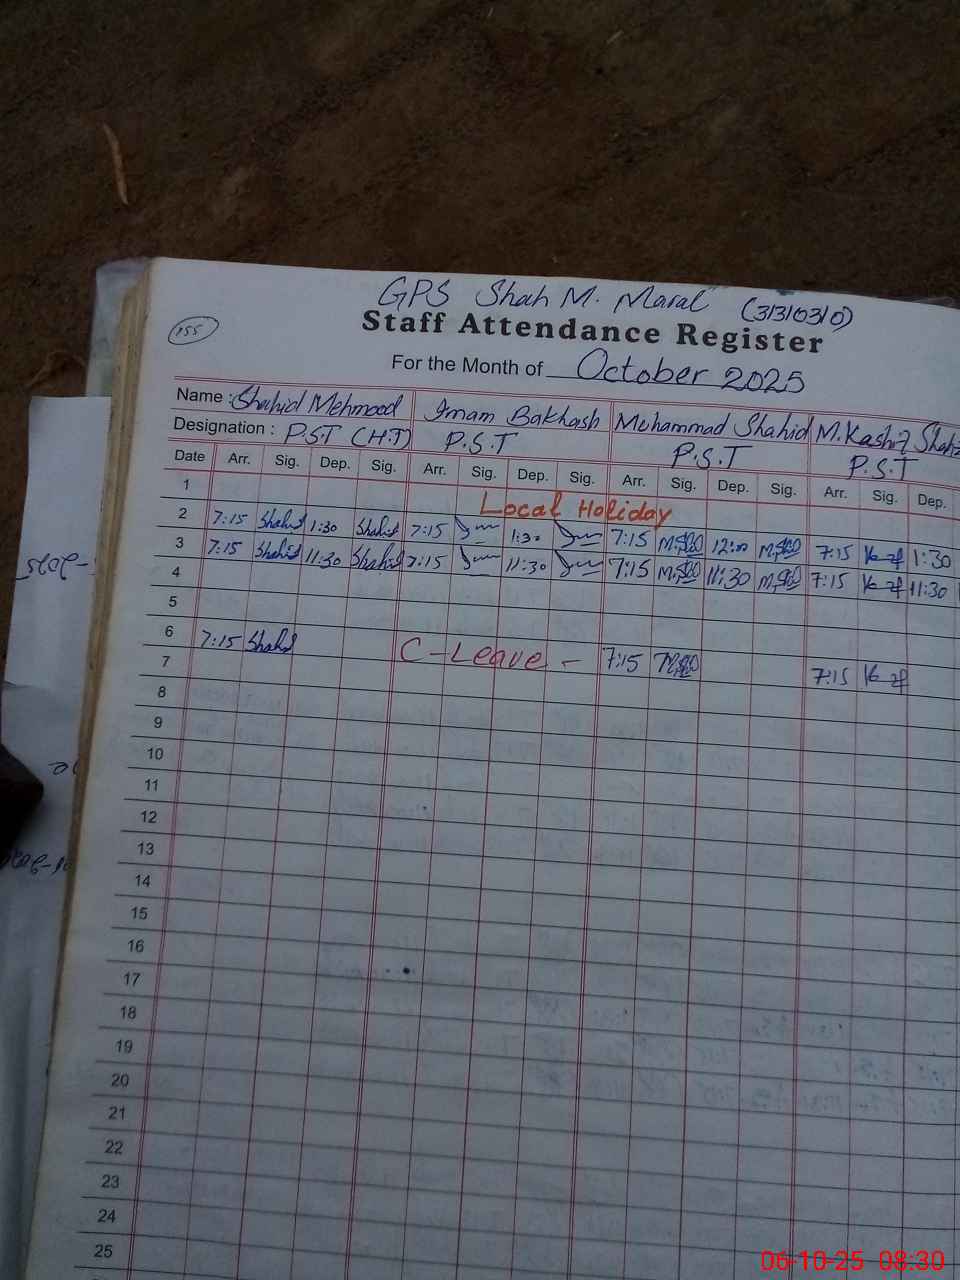 GPS Shah M. Maral (31310310)
155
Staff Attendance Register
For the Month of October 2025
Name : Shahid Mehmood Imam Bakhash Mohammad Shahid M. Kashif
Designation : P.S.T (H.T) P.S.T P.S.T P.S.T
Date Arr. Sig. Dep. Sig. Arr. Sig. Dep. Sig. Arr. Sig. Dep. Sig. Arr. Sig. Dep.
1 Local Holiday
2 7:15 Shahid 1:30 Shahid 7:15 1:30 7:15 12:00 7:15 1:30
3 7:15 Shahid 11:30 Shahid 7:15 11:30 7:15 11:30 7:15 11:30
4
5
6 7:15 Shahid C-Leave - 7:15 7:15
7
8
9
10
11
12
13
14
15
16
17
18
19
20
21
22
23
24
25
06-10-25 08:30